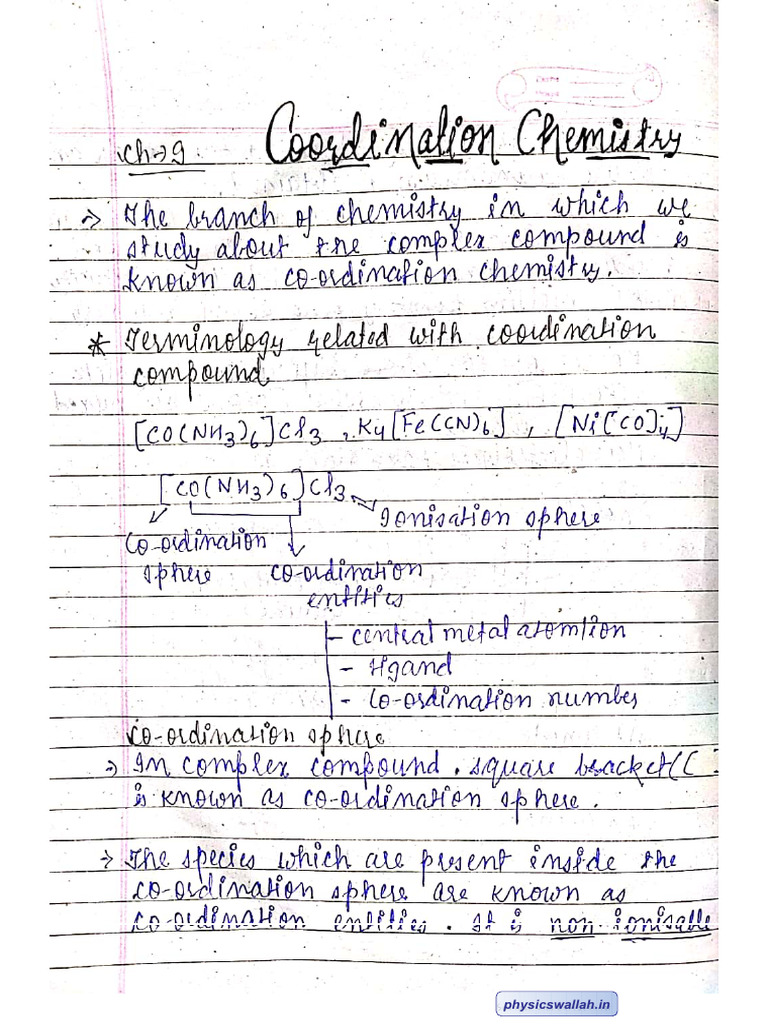 Ch→9
Coordination Chemistry
⇒ The branch of chemistry in which we
study about the complex compound is
known as co-ordination chemistry.
* Terminology related with coordination
compound
[CO(NH3)6]Cl3 , K4[Fe(CN)6] , [Ni[CO]4]
[CO(NH3)6]Cl3
Ionisation sphere
Co-ordination
sphere
co-ordination
entities
- central metal atomtion
- ligand
- Co-ordination number
Co-ordination sphere
⇒ In complex compound . square bracket([
is known as co-ordination sphere .
⇒ The species which are present inside the
co-ordination sphere are known as
co-ordination entities . It is non-ionisable
physicswallah.in